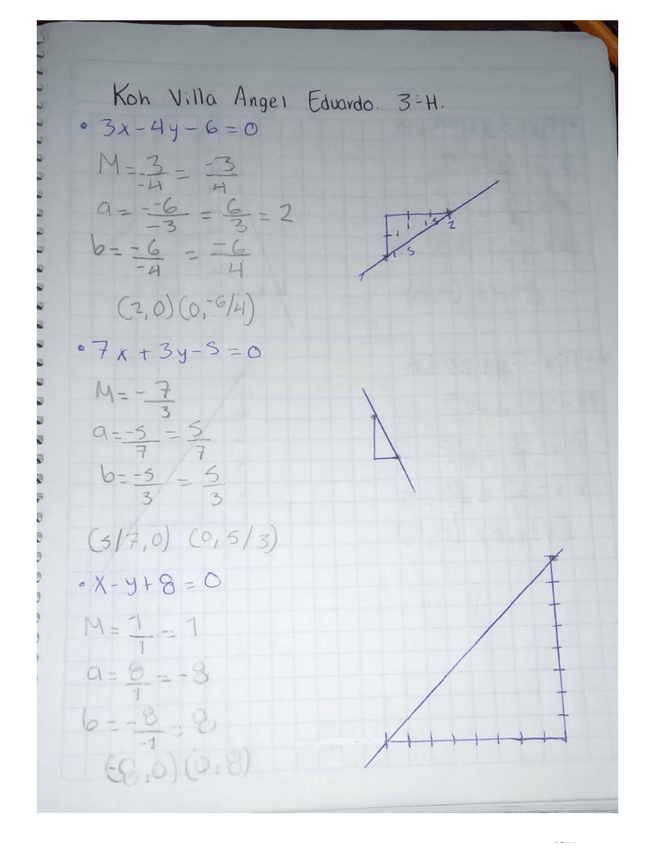 Koh Villa Angel Eduardo. 3-H.
• 3x-4y-6=0
M=3/-4 = -3/4
a=--6/-3 = 6/3 = 2
b=-6/-4 = -6/4
(2,0)(0,-6/4)
2
1.5
• 7x+3y-5=0
M=-7/3
a=-5/7 = 5/7
b=-5/3 = 5/3
(5/7,0) (0,5/3)
• x-y+8=0
M=1/1=1
a=8/1=-8
b=-8/-1=8
(-8,0)(0,8)